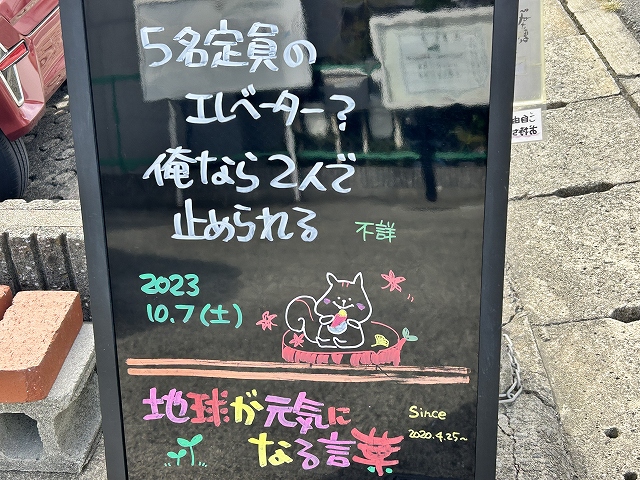 5名定員の
エレベーター?
俺なら2人で
止められる
不詳
2023
10.7(土)
地球が元気に
なる言葉
Since
2020.4.25~